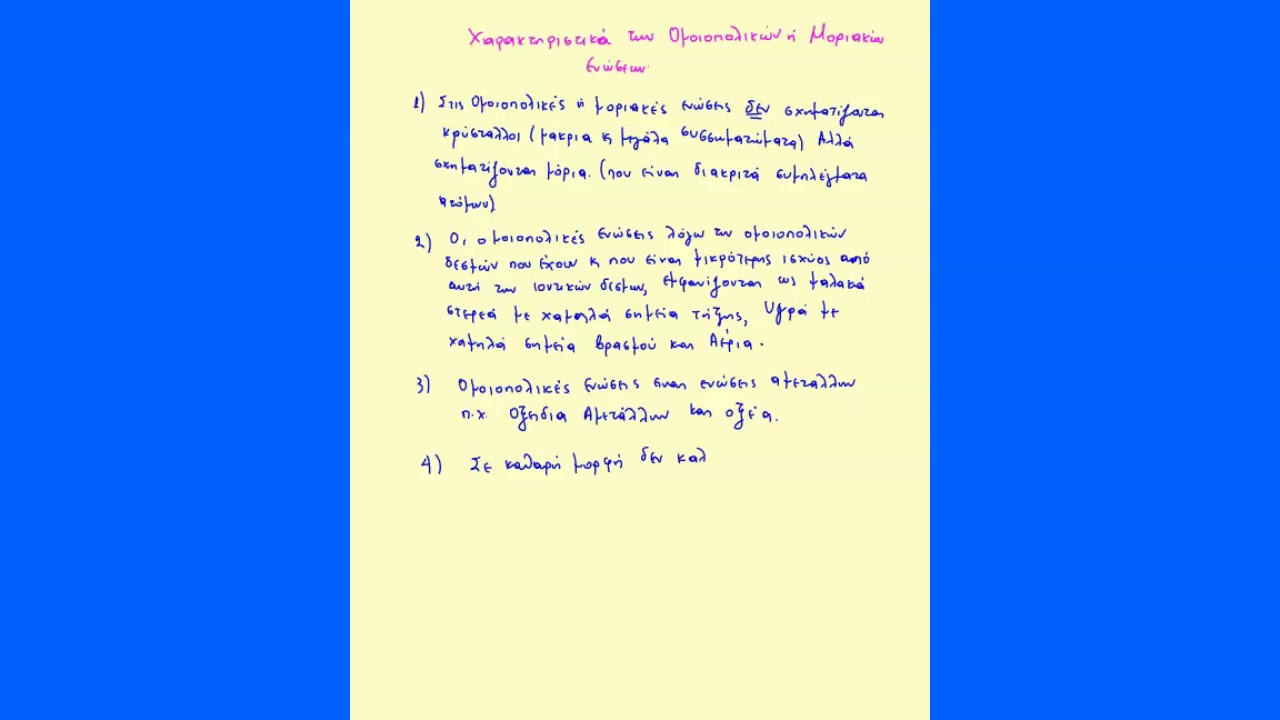 Χαρακτηριστικά των Ομοιοπολικών ή Μοριακών
Ενώσεων
1) Στις Ομοιοπολικές ή μοριακές ενώσεις δεν σχηματίζονται
κρύσταλλοι (μακρια κ μεγάλα συσσωματώματα) Αλλά
σχηματίζονται μόρια. (που είναι διακριτά συμπλέγματα
ατόμων)
2) Οι ομοιοπολικές ενώσεις λόγω των ομοιοπολικών
δεσμών που έχουν κ που είναι μικρότερης ισχύος από
αυτή των ιοντικών δεσμων, εμφανίζονται ως μαλακά
στερεά με χαμηλά σημεία τήξης, Υγρά με
χαμηλά σημεία βρασμού και Αέρια.
3) Ομοιοπολικές ενώσεις ειναι ενώσεις αμεταλλων
π.χ. Οξειδια Αμετάλλων και οξέα.
4) Σε καθαρή μορφή δεν καλ